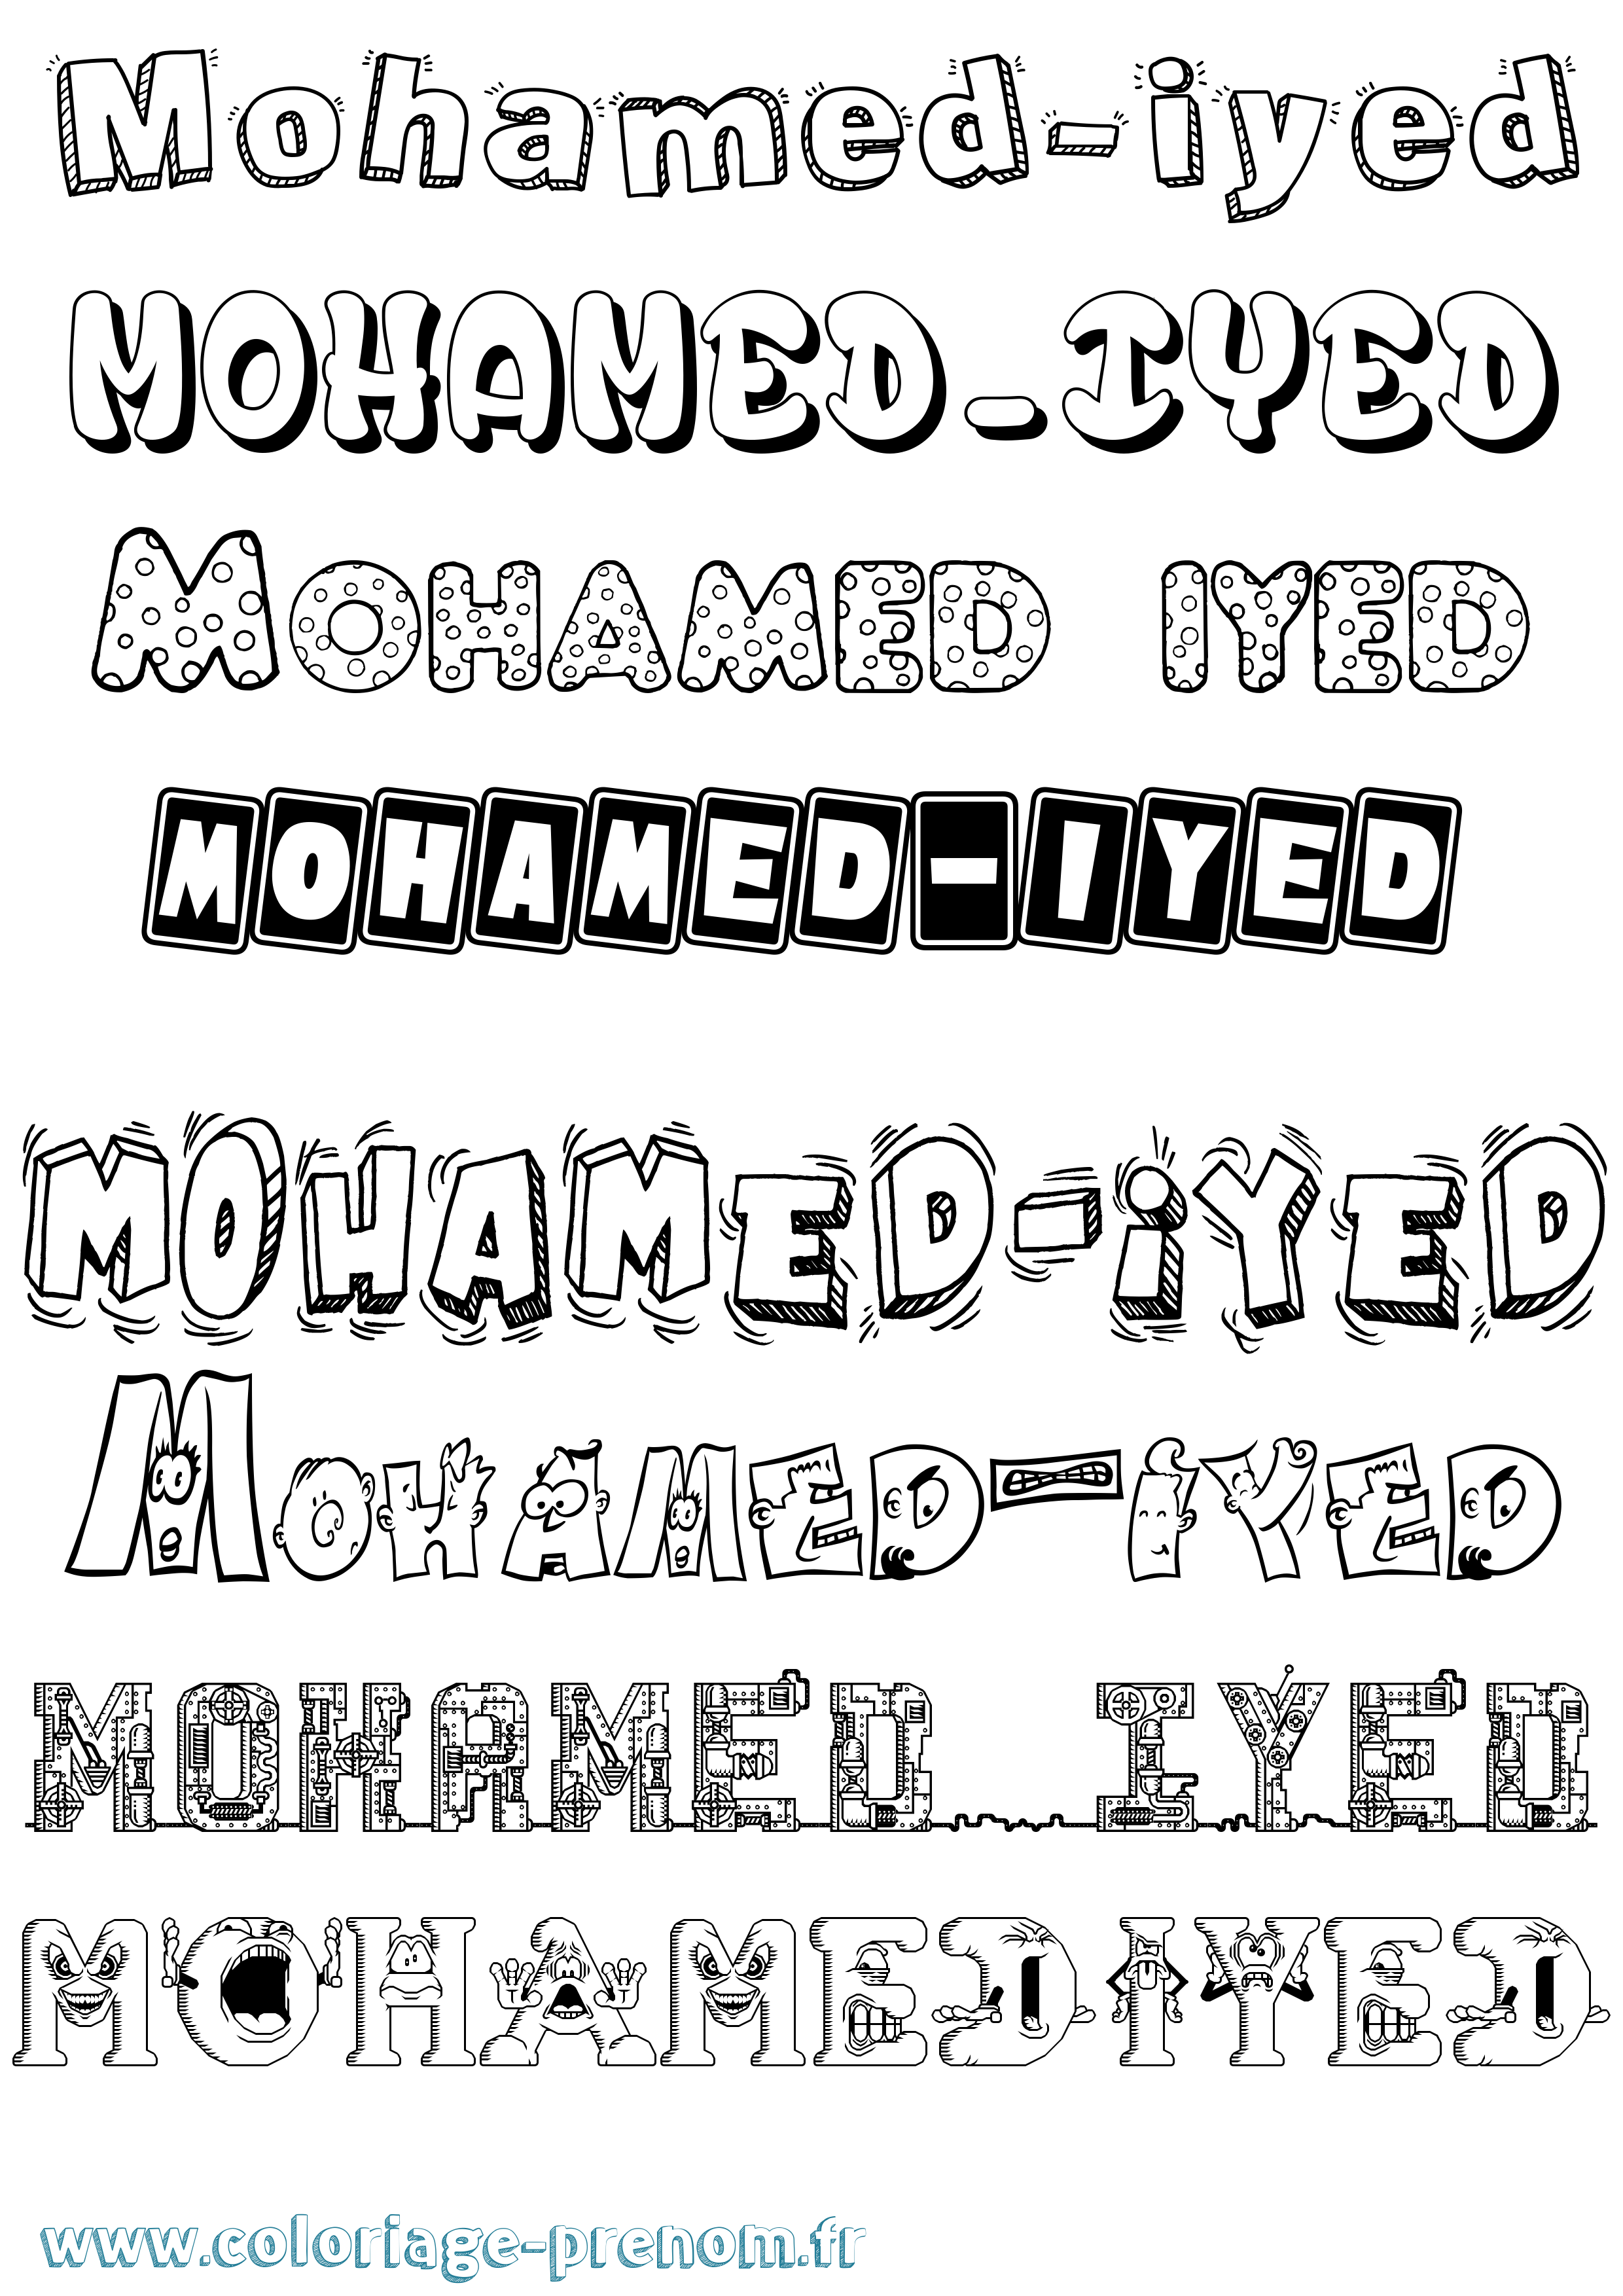 Mohamed-iyed
MOHAMED-IYED
MOHAMED IYED
MOHAMED-IYED
MOHAMED-iYED
MOHAMED-IYED
MOHAMED IYED
MOHAMEDIYED
www.coloriage-prenom.fr